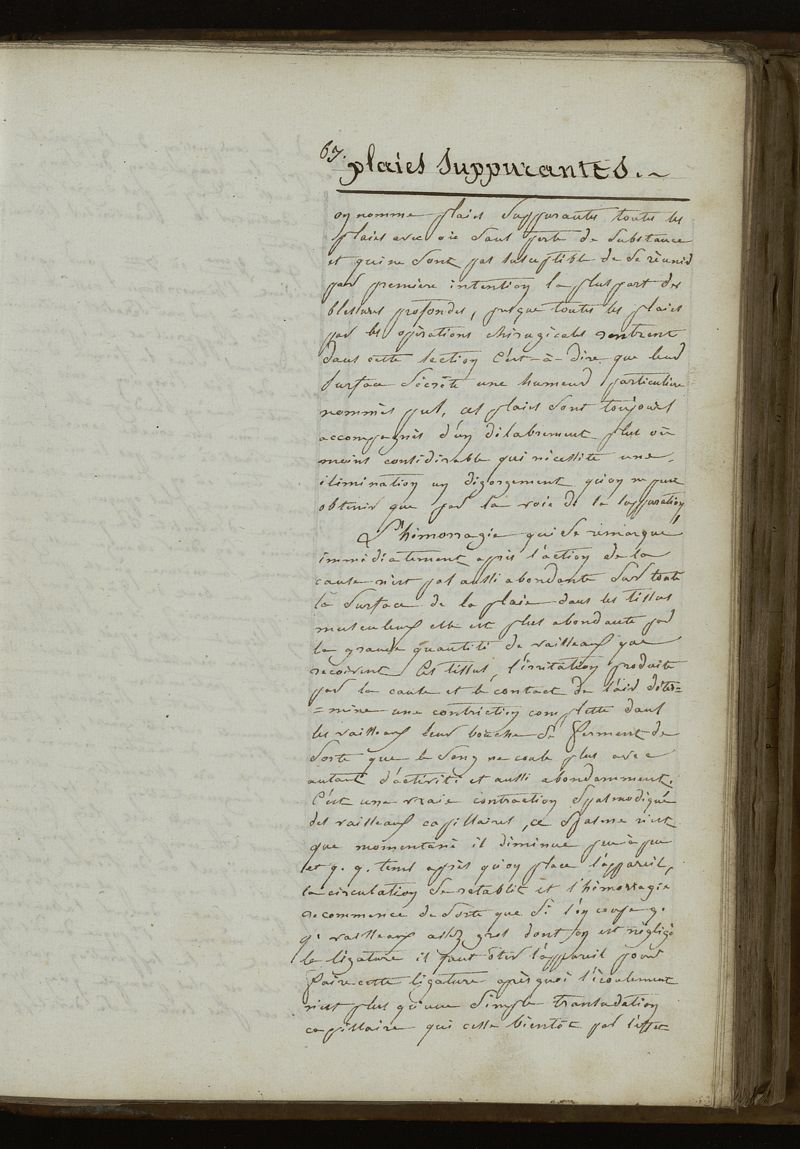 67.
plaies Suppurantes. ~
on nomme plaies Suppurantes toutes les
plaies avec ou Sans perte de Substance
et qui ne Sont pas susceptible de se réunir
par première intention la plus part des
blessures profondes, presque toutes les plaies
par les opérations chirugicales rentrent
dans cette section C'est-à-dire que leur
Surface Sécrète une humeur particulière
nommés pus, ces plaies Sont toujours
accompagnés d'un délabrement plus ou
moins considérable qui nécessite une
élimination un dégorgement qu'on ne peut
obtenir que par la voie de la suppuration
L'hémorragie qui se remarque
immédiatement après l'action de la
cause n'est pas aussi abondante Sur toute
la Surface de la plaie dans les tissus
musculeux elle est plus abondante par
la grande quantité de vaisseaux que
reçoivent Ces tissus, l'irritation produite
par la cause et le contact de l'air déter=
=mine une contriction complette dans
les vaisseaux leur bouche Se ferment de
Sorte que le Sang ne coule plus avec
autant d'activité et aussi abondamment.
C'est une vraie contraction Spasmodique
des vaisseaux capillaires, ce Spasme n'est
que momentané il diminue peu à peu
et q. q. tems après qu'on place l'appareil,
la circulation Se rétablit et l'hémorragie
recommence de Sorte que Si l'on coupe q.
q. vaisseaux assez gros dont on est négligé
la ligature il faut ôter l'appareil pour
faire cette ligature après quoi l'écoulement
n'est plus qu'une Simple transudation
capillaire qui cesse bientôt par l'effet